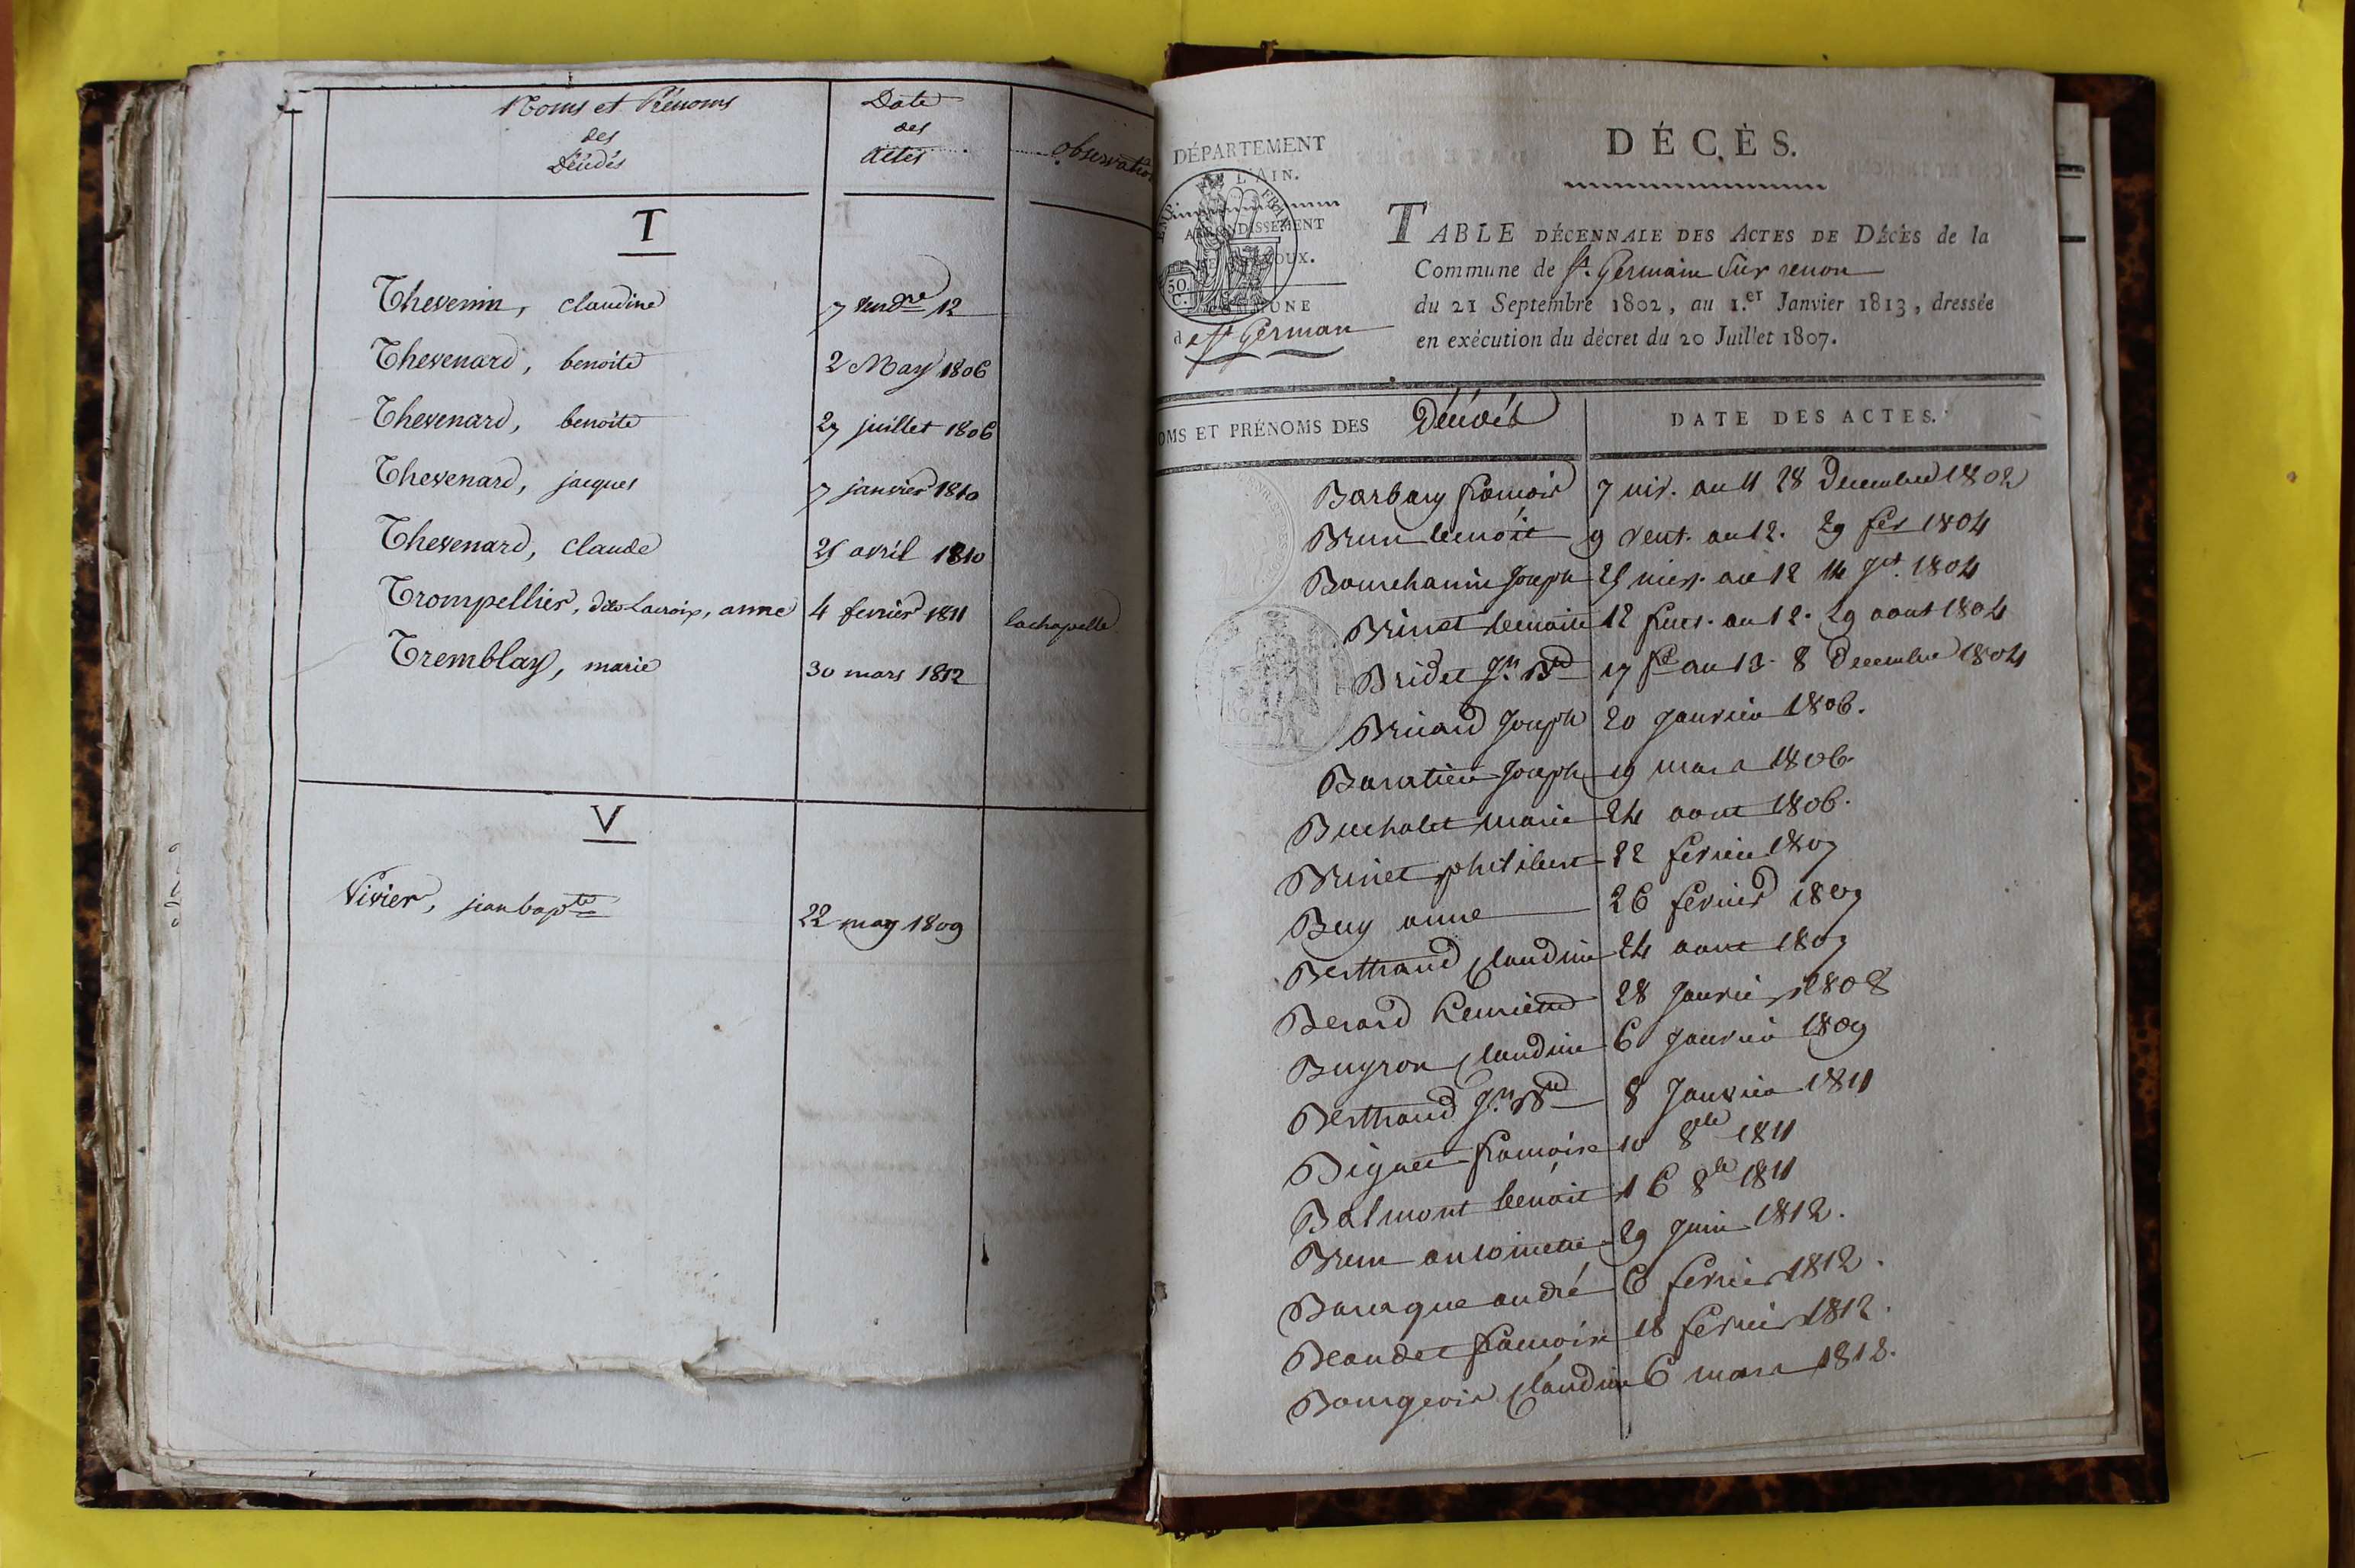 Noms et Prénoms
des
Décédés
Date
des
actes
observatio
T
Thevenin, claudine 7 vend.re 12
Thevenard, benoite 2 May 1806
Thevenard, benoite 27 juillet 1806
Thevenard, jacques 7 janvier 1810
Thevenard, claude 25 avril 1810
Trompellier, dite Lacroix, anne 4 fevrier 1811 lachapelle
Tremblay, marie 30 mars 1812
V
Vivier, jean bapte 22 may 1809
DÉPARTEMENT
L'AIN.
ARRONDISSEMENT
OUX.
50.
C.
COMMUNE
de St Germain
DÉCÈS.
TABLE DÉCENNALE DES ACTES DE DÉCÈS de la
Commune de St. Germain Sur renon
du 21 Septembre 1802, au 1.er Janvier 1813, dressée
en exécution du décret du 20 Juillet 1807.
OMS ET PRÉNOMS DES Décédés DATE DES ACTES.
Barbary francois 7 niv. an 11 28 Decembre 1802
Brun benoit 9 vent. an 12. 29 fer 1804
Bourchanin Joseph 25 mess. an 12 14 Jet. 1804
Brinet benoite 12 fruct. an 12. 29 aout 1804
Bridet Jn. Bd 17 fre an 13. 8 Decembre 1804
Bricard Joseph 20 Janvier 1806.
Baratier Joseph 19 mars 1806.
Buchalet marie 24 aout 1806.
Brinet philibert 22 fevrier 1807
Buy anne 26 fevrier 1807
Berthrand Claudine 24 aout 1807
Berard henriette 28 Janvier 1808
Buyron Claudine 6 Janvier 1809
Berthrand Jn. Bd 8 Janvier 1811
Biguet francoise 10 8bre 1811
Balmont benoit 16 8bre 1811
Brun antoinette 29 Juin 1812.
Baraque andré 6 fevrier 1812.
Beaudet francoise 18 fevrier 1812.
Bourgeois Claudine 6 mars 1812.